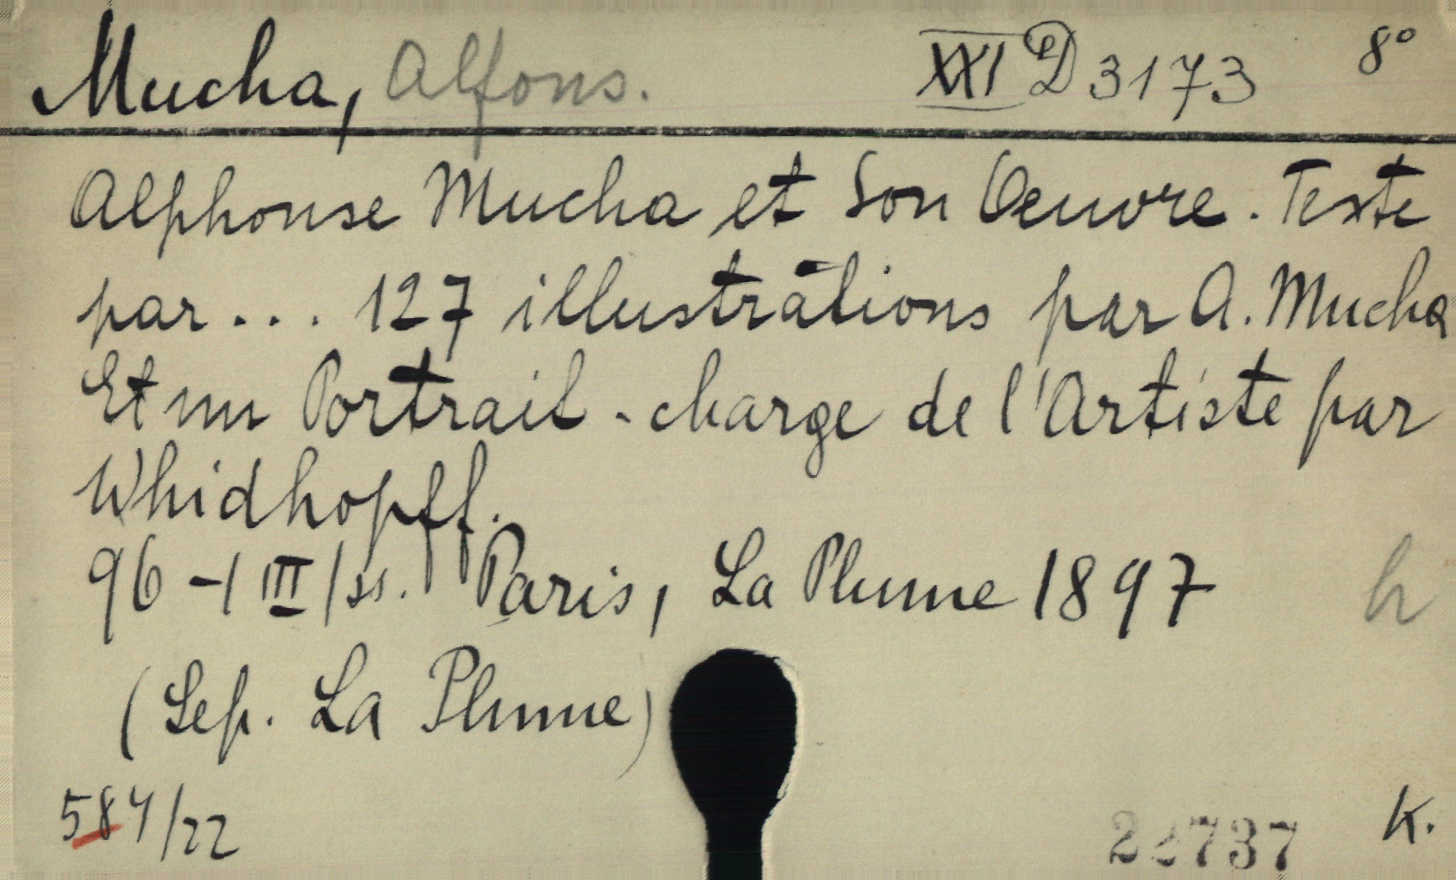 Mucha, Alfons. XXI D 3173 8°
Alphonse Mucha et Son Oeuvre. Texte
par... 127 illustrations par A. Mucha
Et un Portrait-charge de l'Artiste par
Whidhopff.
96-/III/ss. Paris, La Plume 1897 h
(Sep. La Plume)
584/22 K.